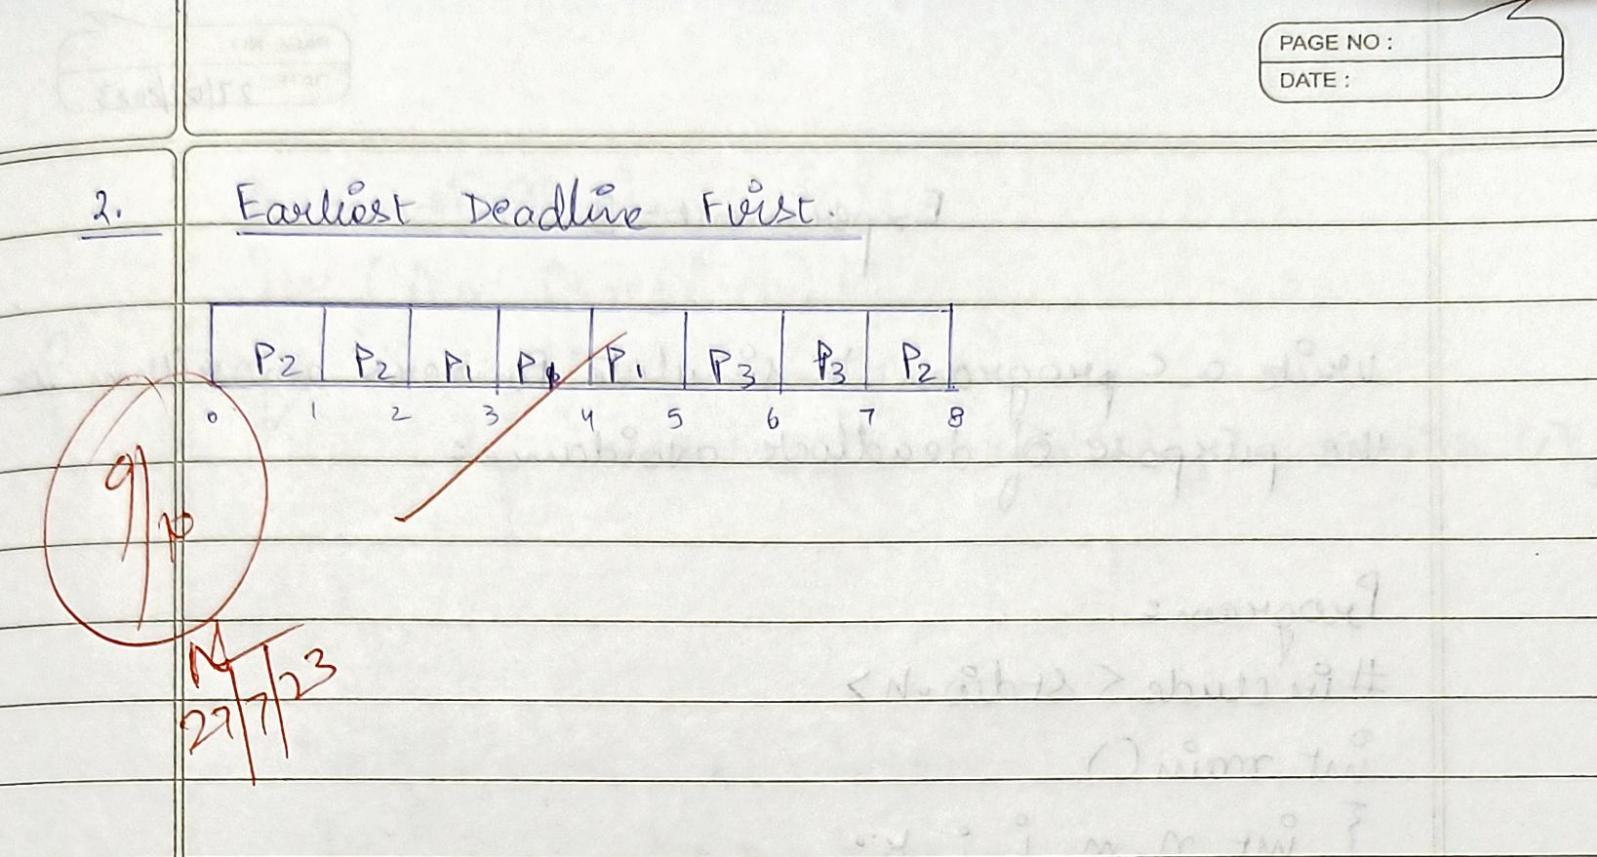 PAGE NO :
DATE :
2. Earliest Deadline First.
P2 P2 P1 P1 P1 P3 P3 P2
0 1 2 3 4 5 6 7 8
9/10
27/7/23